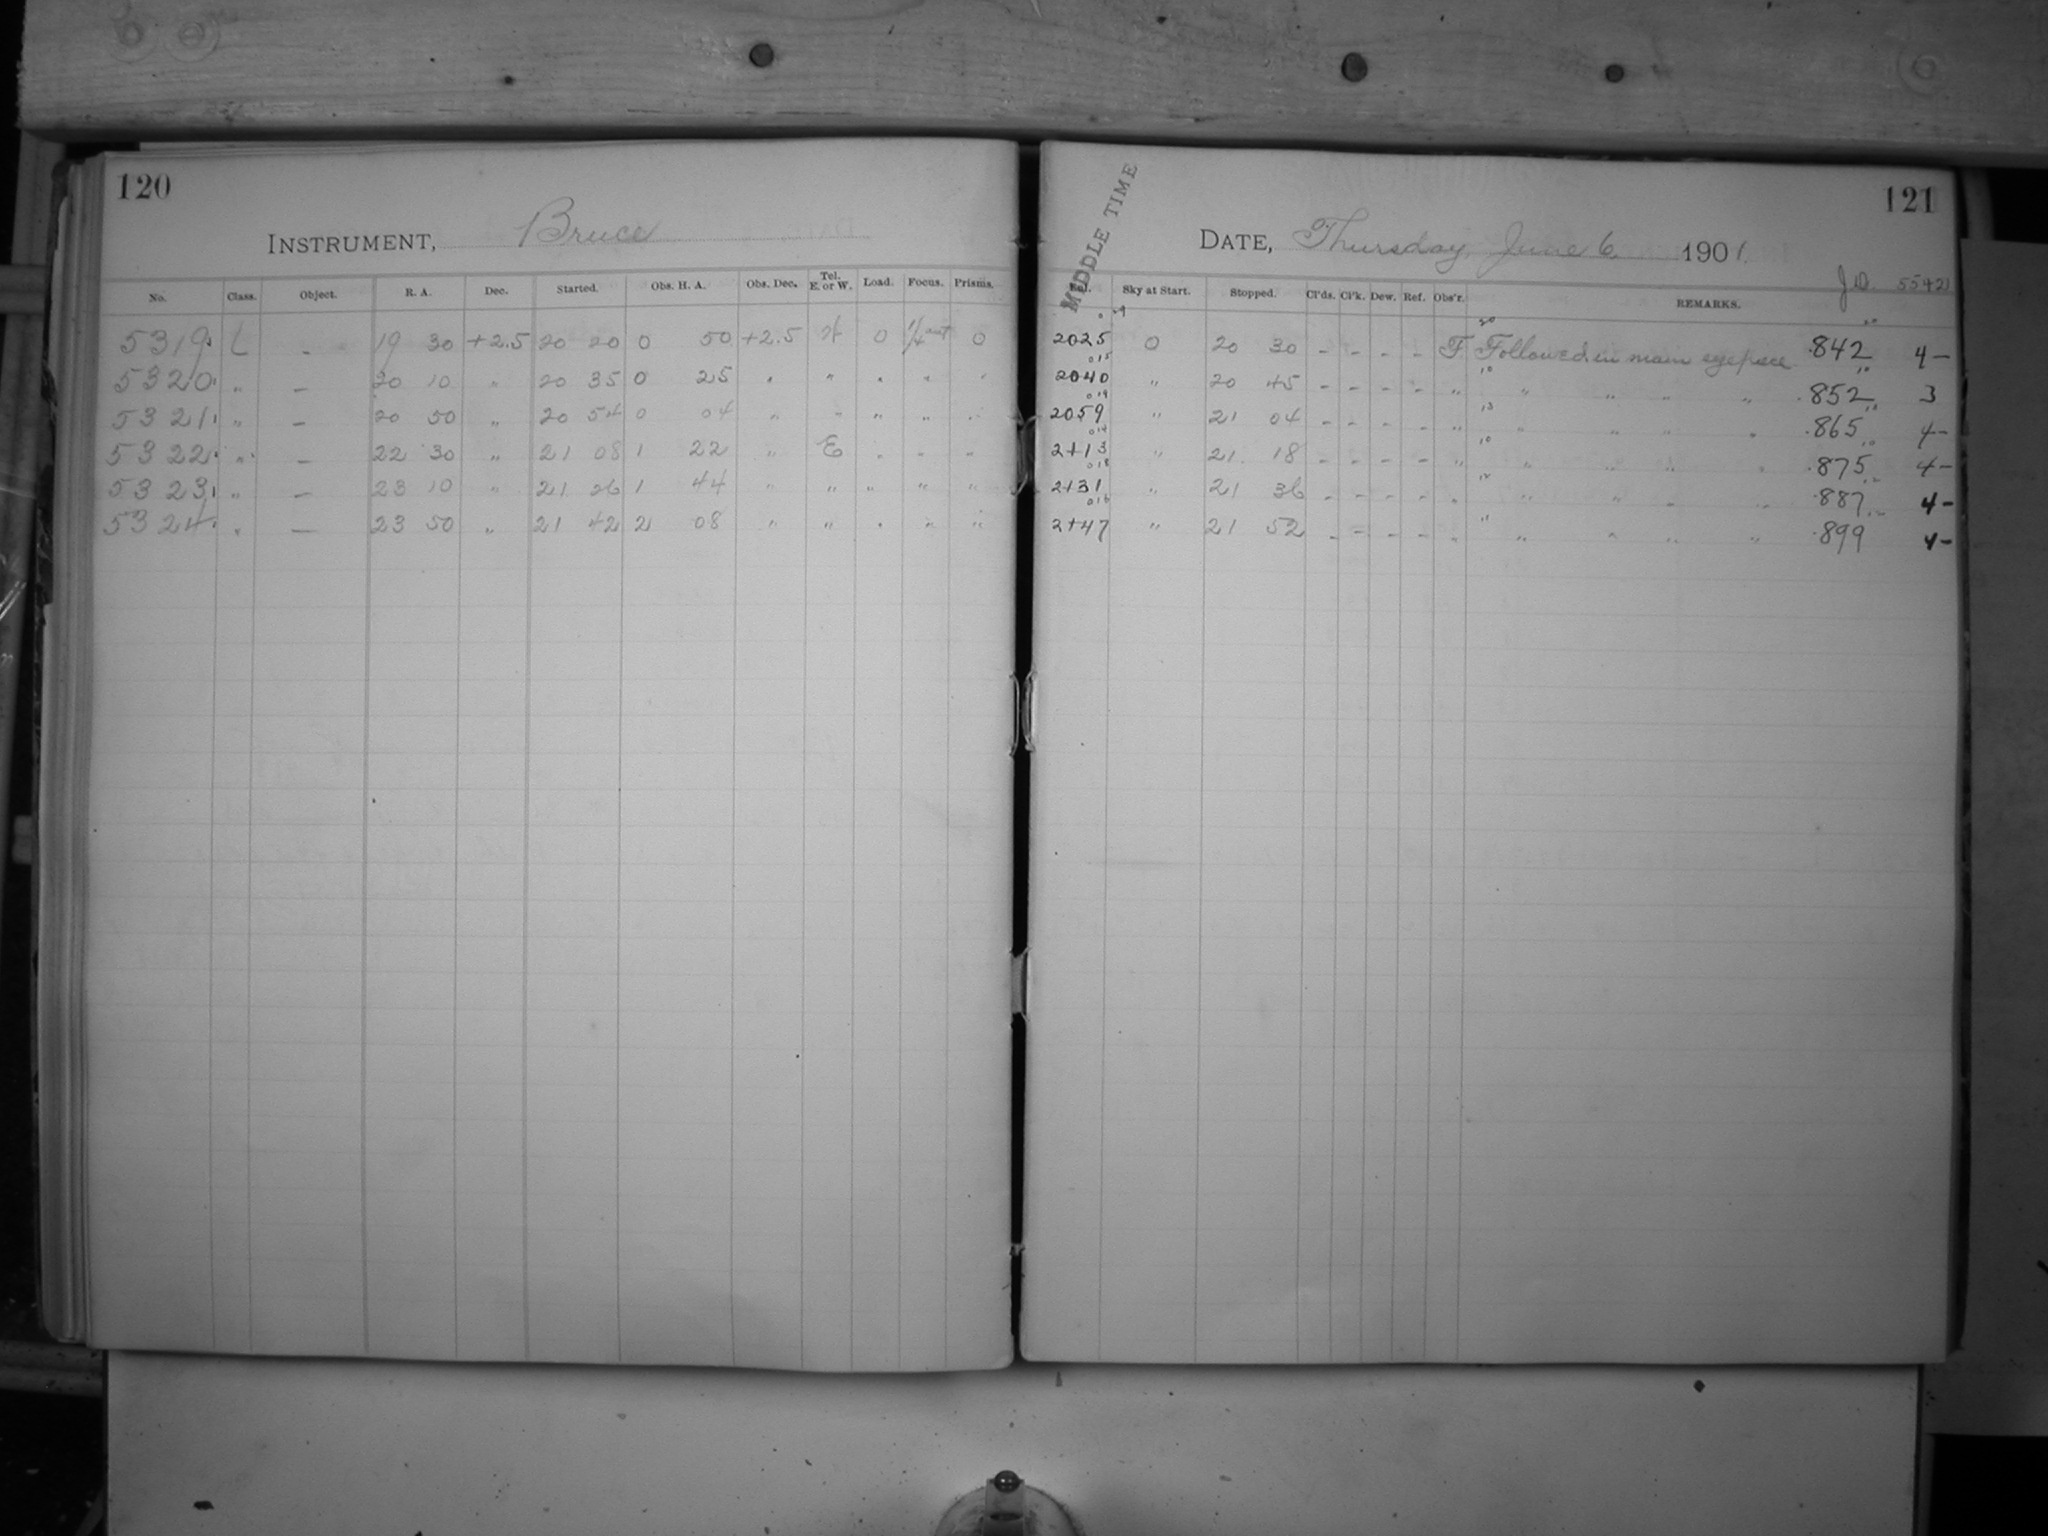 120
INSTRUMENT, Bruce
No. Class. Object. R. A. Dec. Started. Obs. H. A. Obs. Dec. Tel. E. or W. Load. Focus. Prisms.
5319 L - 19 30 +2.5 20 20 0 50 +2.5 0 0
5320 " - 20 10 " 20 35 0 25 " " " " "
5321 " - 20 50 " 20 54 0 04 " " " " "
5322 " - 22 30 " 21 08 1 22 " E " " "
5323 " - 23 10 " 21 26 1 44 " " " " "
5324 " - 23 50 " 21 42 2 08 " " " " "
121
MIDDLE TIME
DATE, Thursday, June 6 1901.
J.D. 55421
Sky at Start. Stopped. Cl'ds. Cl'k. Dew. Ref. Obs'r. REMARKS.
2025 0 20 30 - - - - F Followed in main eyepiece .842 4-
2040 " 20 45 - - - - " " " " " .852 3
2059 " 21 04 - - - - " " " " " .865 4-
2113 " 21 18 - - - - " " " " " .875 4-
2131 " 21 36 - - - - " " " " " .887 4-
2147 " 21 52 - - - - " " " " " .899 4-